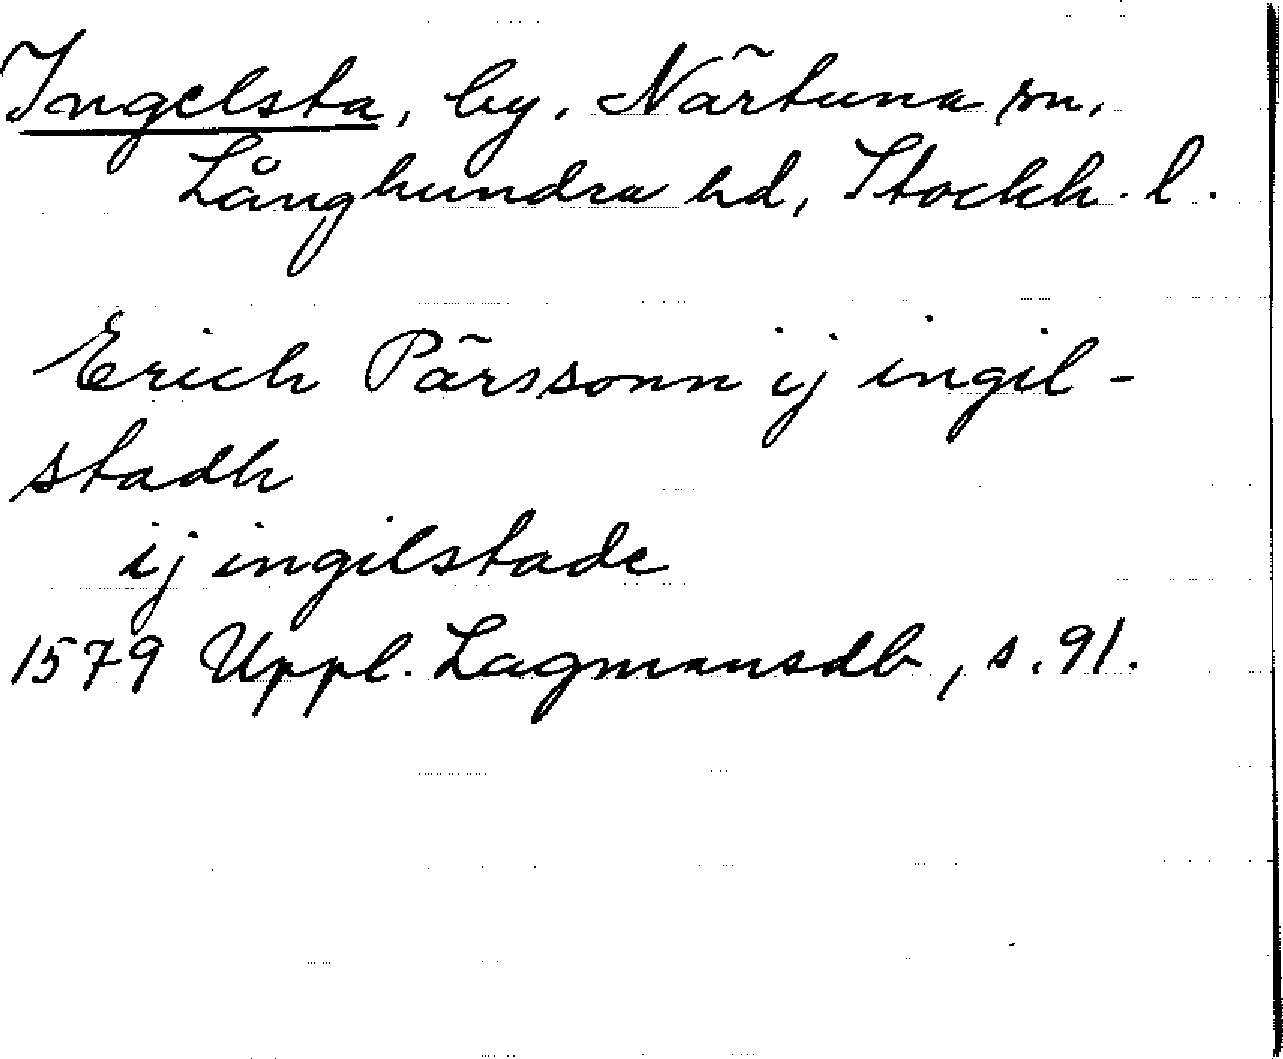 Ingelsta, by, Närtuna sn,
Långhundra hd, Stockh. l.
Erich Pärssonn ij ingil-
stadh
ij ingilstade
1579 Uppl. Lagmansdb, s. 91.